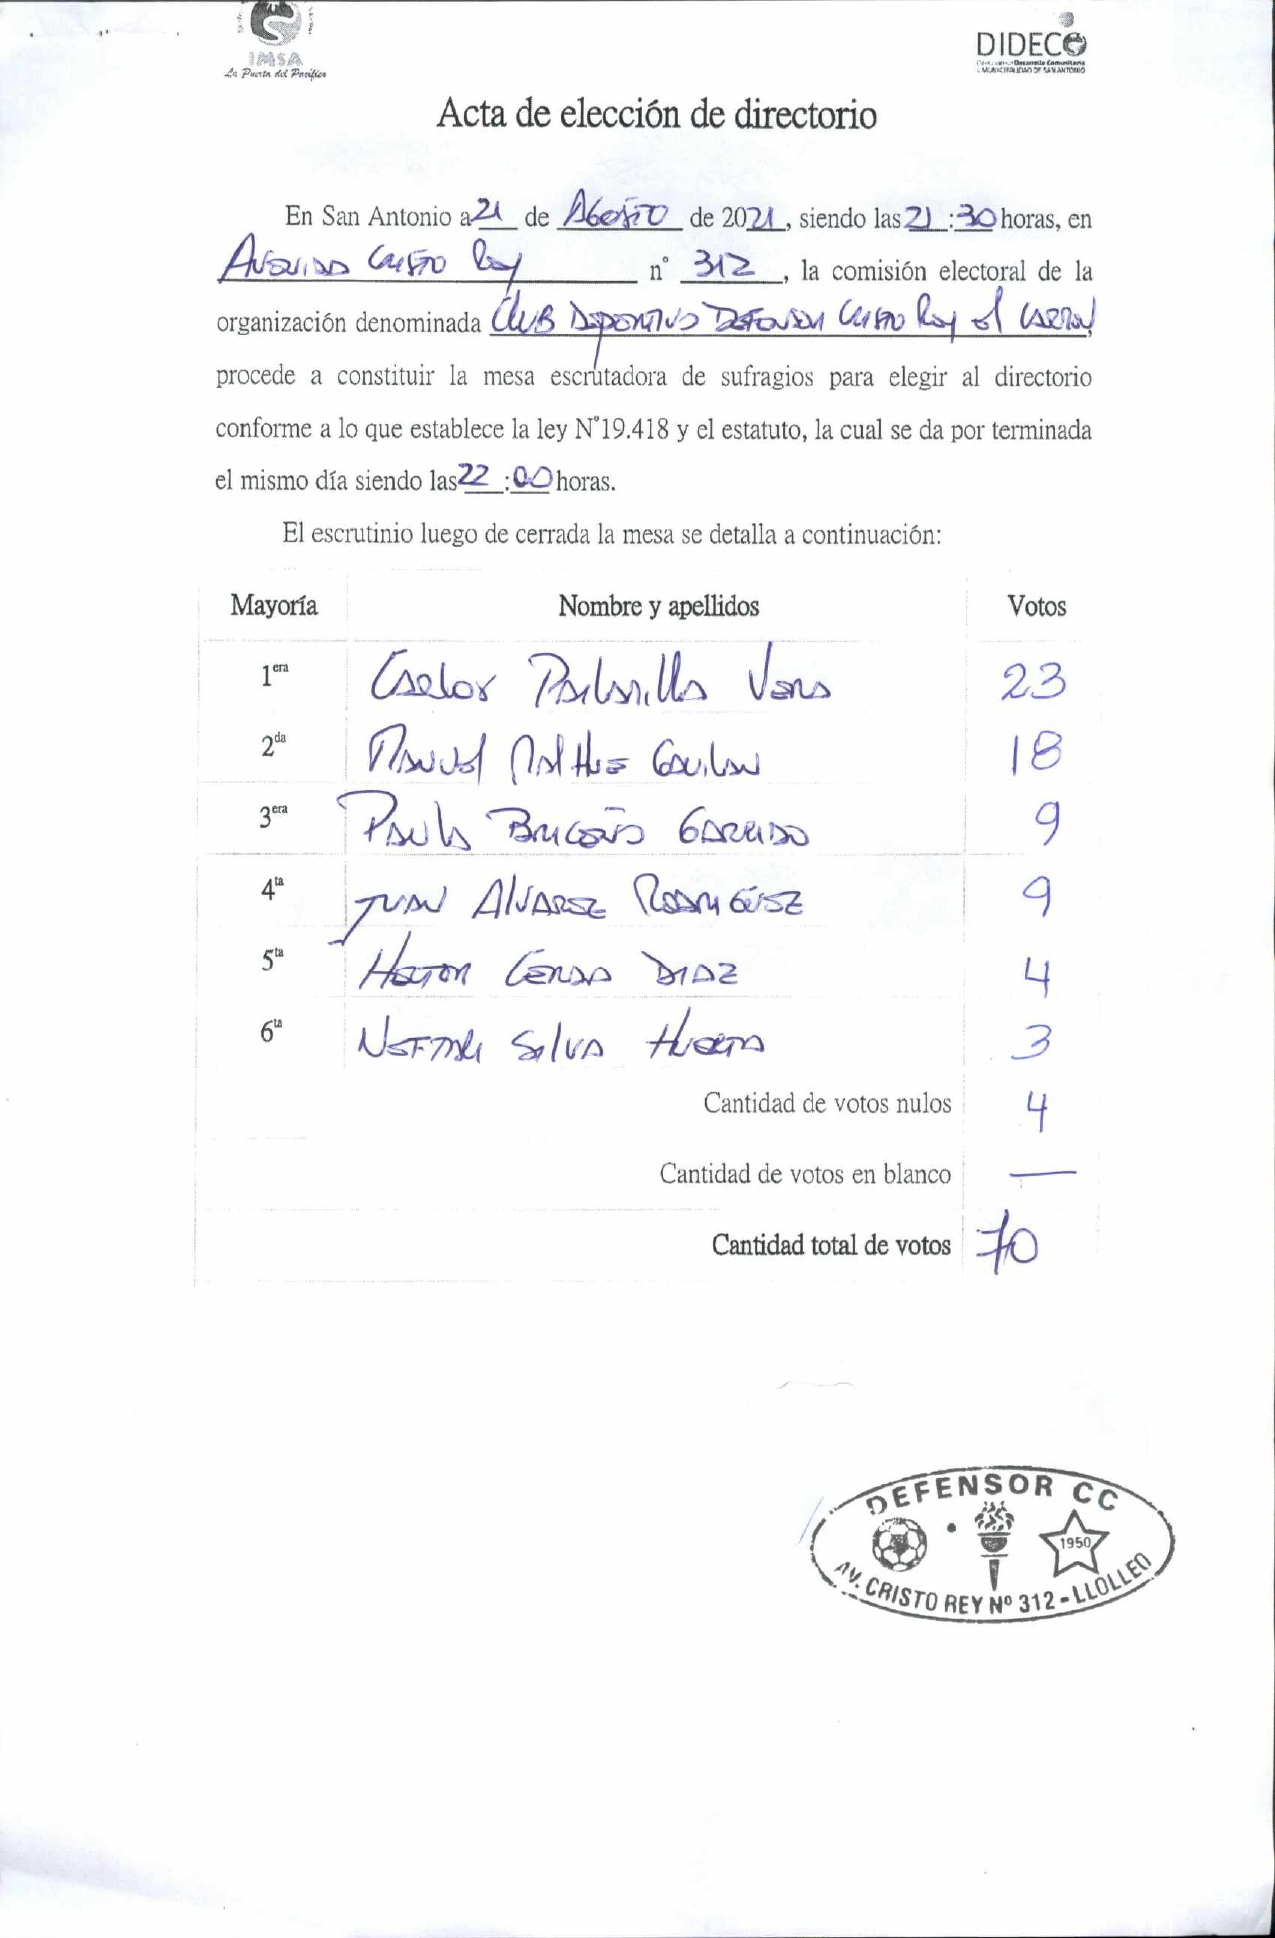 IMSA
La Puerta del Pacífico
DIDECO
Desarrollo Comunitario
I. MUNICIPALIDAD DE SAN ANTONIO
Acta de elección de directorio
En San Antonio a 21 de Agosto de 2021, siendo las 21:30 horas, en
Avenida Cristo Rey n° 312, la comisión electoral de la
organización denominada Club Deportivo Defensor Cristo Rey el
procede a constituir la mesa escrutadora de sufragios para elegir al directorio
conforme a lo que establece la ley N°19.418 y el estatuto, la cual se da por terminada
el mismo día siendo las 22:00 horas.
El escrutinio luego de cerrada la mesa se detalla a continuación:
Mayoría Nombre y apellidos Votos
1era Carlos Pailamilla Vera 23
2da Manuel 18
3era Paula Briceño Garrido 9
4ta Juan Alvarez Rodriguez 9
5ta Hector Cerda Diaz 4
6ta Neftali Silva Huerta 3
Cantidad de votos nulos 4
Cantidad de votos en blanco —
Cantidad total de votos 70
DEFENSOR CC
1950
AV. CRISTO REY Nº 312 - LLOLLEO